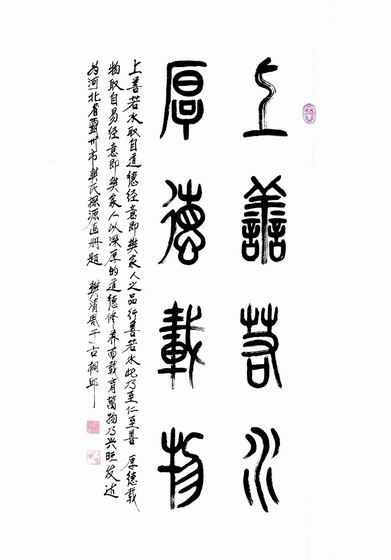 上善若水
厚德載物
上善若水取自道德经意即樊家人之品行善若水此乃至仁至善 厚德载
物取自易经意即樊家人以深厚的道德修养而载育萬物乃兴旺发达
为河北省霸州市樊氏探源画册题 樊省于古桐邱